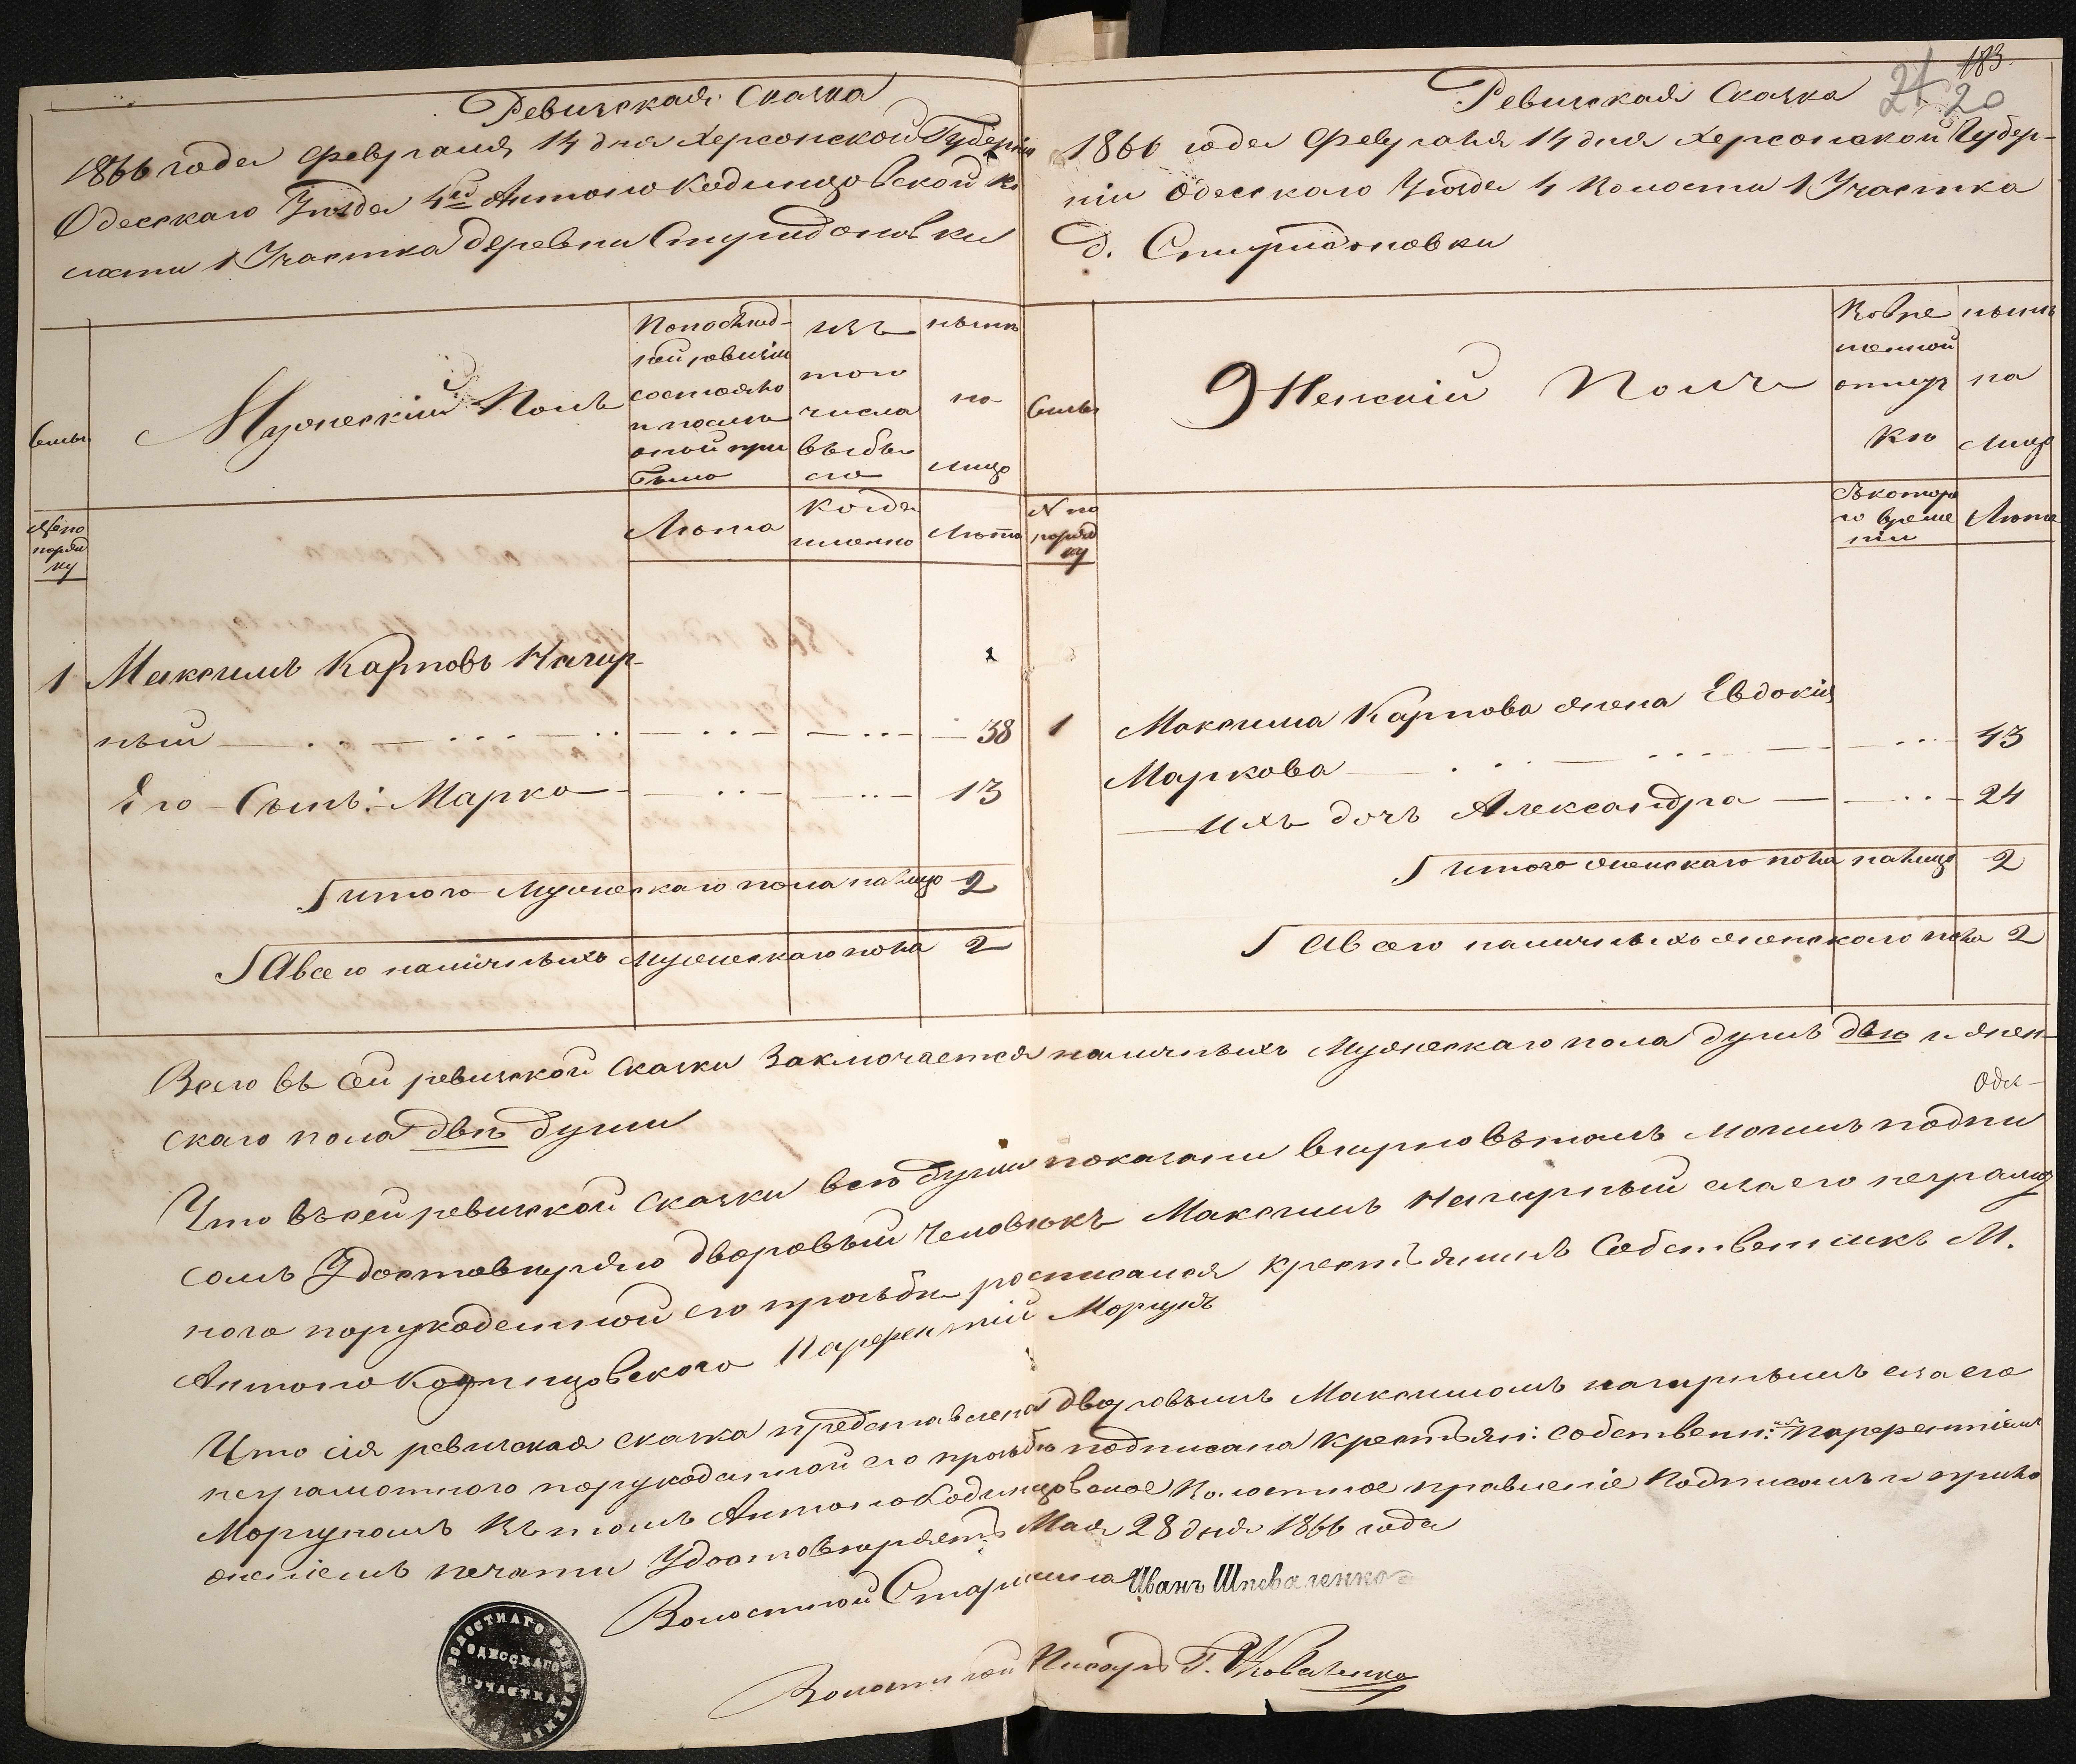 Ревизская Сказка
1866 года февраля 14 дня Херсонской Губерніи
Одесскаго Уѣзда 4й Антоно Кодинцовской во
лости 1 Участка деревни Спиридоновки
Семьи
Мужескій Полъ
По послѣд-
ней ревизіи
состояло
и послѣ
оной при
было
изъ
того
числа
выбы
ло
нынѣ
на
лицо
№ по
поряд
ку
Лѣта
когда
именно
Лѣта
1 Максимъ Карповъ Нагир-
ный 38
Его Сынъ: Марко 13
Итого Мужескаго пола на лицо 2
А всего наличныхъ мужескаго пола 2
183
21 20
Ревизская Сказка
1866 года Февраля 14 дня Херсонской Губер-
ніи Одесскаго Уѣзда 4 Волости 1 Участка
д. Спиридоновки
Семьи
Женскій Полъ
Во вре
менной
отлуч
кѣ
нынѣ
на
лицо
№ по
поряд
ку
Съ котора
го време
ніи
Лѣта
1 Максима Карпова жена Евдокія
Маркова 43
ихъ дочь Александра 24
Итого женскаго пола на лицо 2
А всего наличныхъ женскаго пола 2
Всего въ сей ревизской сказки заключается наличныхъ Мужескаго пола душъ двѣ и жен-
скаго пола двѣ души
Одес-
Что въ сей ревизской сказки всѣ души показани вѣрно въ томъ моимъ подпи
сомъ Удостовѣряю дворовый человѣкъ Максимъ Нагирный а за его неграмот
ного порукоданной его прозьбѣ росписался крестьянинъ Собственикъ М.
Антоно Кодинцовского Парфентій Моргунъ
Что сія ревизская сказка представлена дворовымъ Максимомъ нагирнымъ а за его
неграмотного порукоданной его прозьбѣ подписана крестьян: собствени: Парфентіемъ
Моргуномъ въ томъ Антоно Кодинцовское Волостное правленіе Подписомъ и прило
женіемъ печати Удостовѣряетъ Мая 28 дня 1866 года
Волостной Старшина Иванъ Шпеваленко
Волостной Писарь Г. Коваленко
ВОЛОСТНАГО ПРАВЛЕНІЯ
ОДЕССКАГО
УЧАСТКА